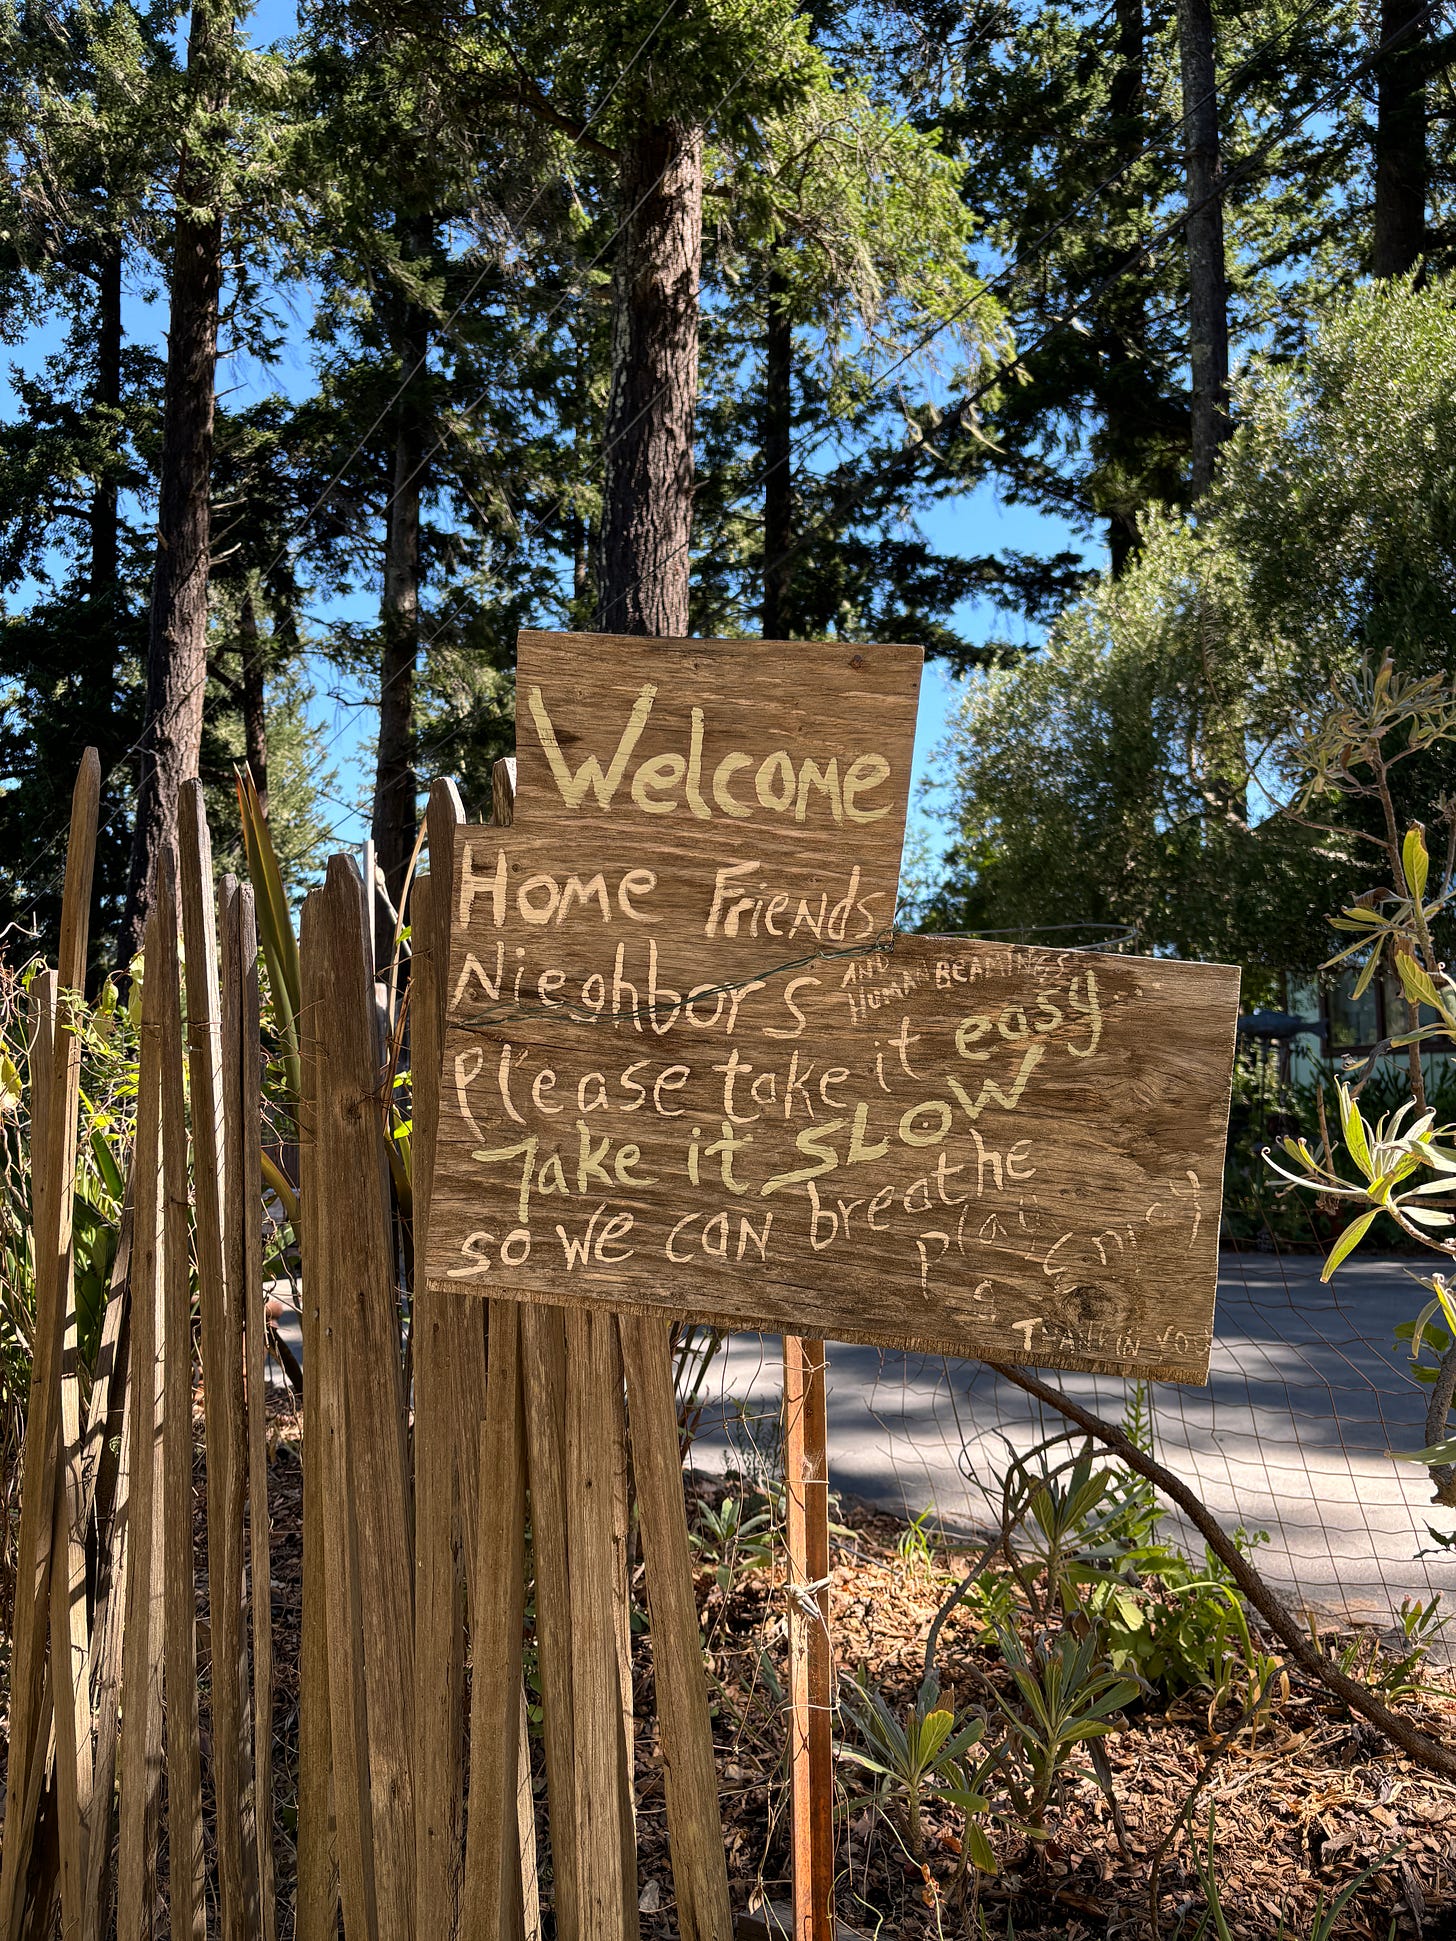 Welcome
Home Friends
Nieghbors AND
HUMAN BEAMINGS
Please take it easy...
Take it SLOW
so we can breathe